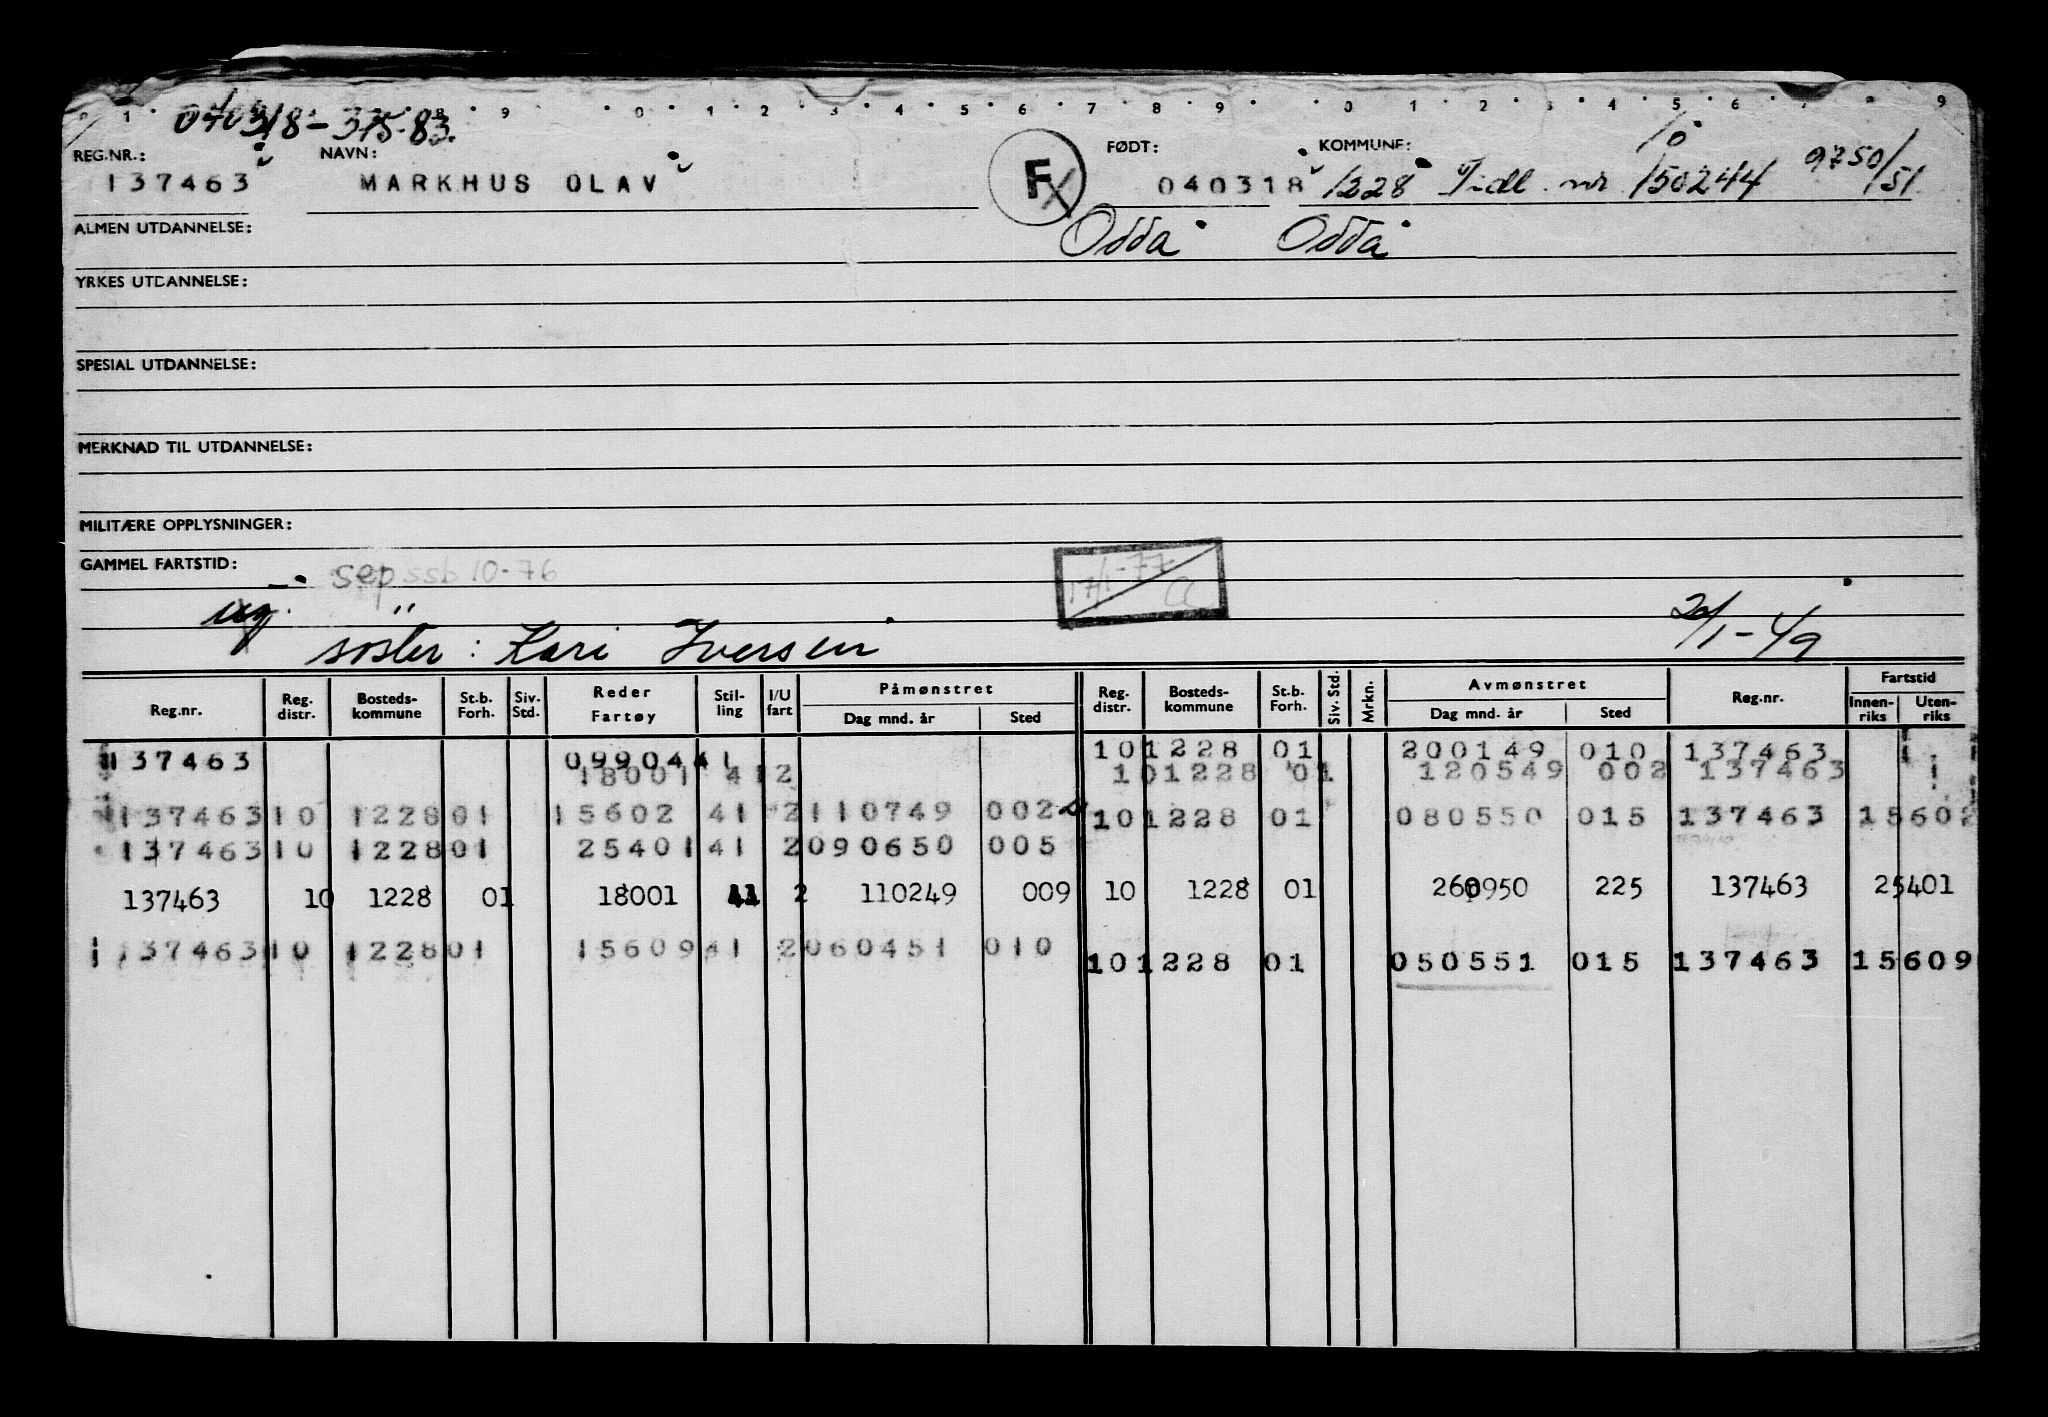 1 9 0 1 2 3 4 5 6 7 8 9 0 1 2 3 4 5 6 9
040318-375.83.
REG.NR.: NAVN: F FØDT: KOMMUNE: 10
137463 MARKHUS OLAV 040318 1228 Tidl. nr 150244 9750/51
ALMEN UTDANNELSE: Odda Odda
YRKES UTDANNELSE:
SPESIAL UTDANNELSE:
MERKNAD TIL UTDANNELSE:
MILITÆRE OPPLYSNINGER:
GAMMEL FARTSTID: sep ssb 10-76 17/1-77
ug. 20/1-49
söster: Kari Iversen
Reg.nr. Reg. distr. Bosteds-kommune St.b. Forh. Siv. Std. Reder Fartøy Stil-ling I/U fart Påmønstret Dag mnd. år Sted Reg. distr. Bosteds-kommune St.b. Forh. Siv. Std. Mrkn. Avmønstret Dag mnd. år Sted Reg.nr. Fartstid Innen-riks Uten-riks
137463 09904 41 10 1228 01 200149 010 137463
18001 41 2 10 1228 01 120549 002 137463
137463 10 1228 01 15602 41 2 110749 002 10 1228 01 080550 015 137463 15602
137463 10 1228 01 25401 41 2 090650 005
137463 10 1228 01 18001 41 2 110249 009 10 1228 01 260950 225 137463 25401
137463 10 1228 01 15609 41 2 060451 010 10 1228 01 050551 015 137463 15609